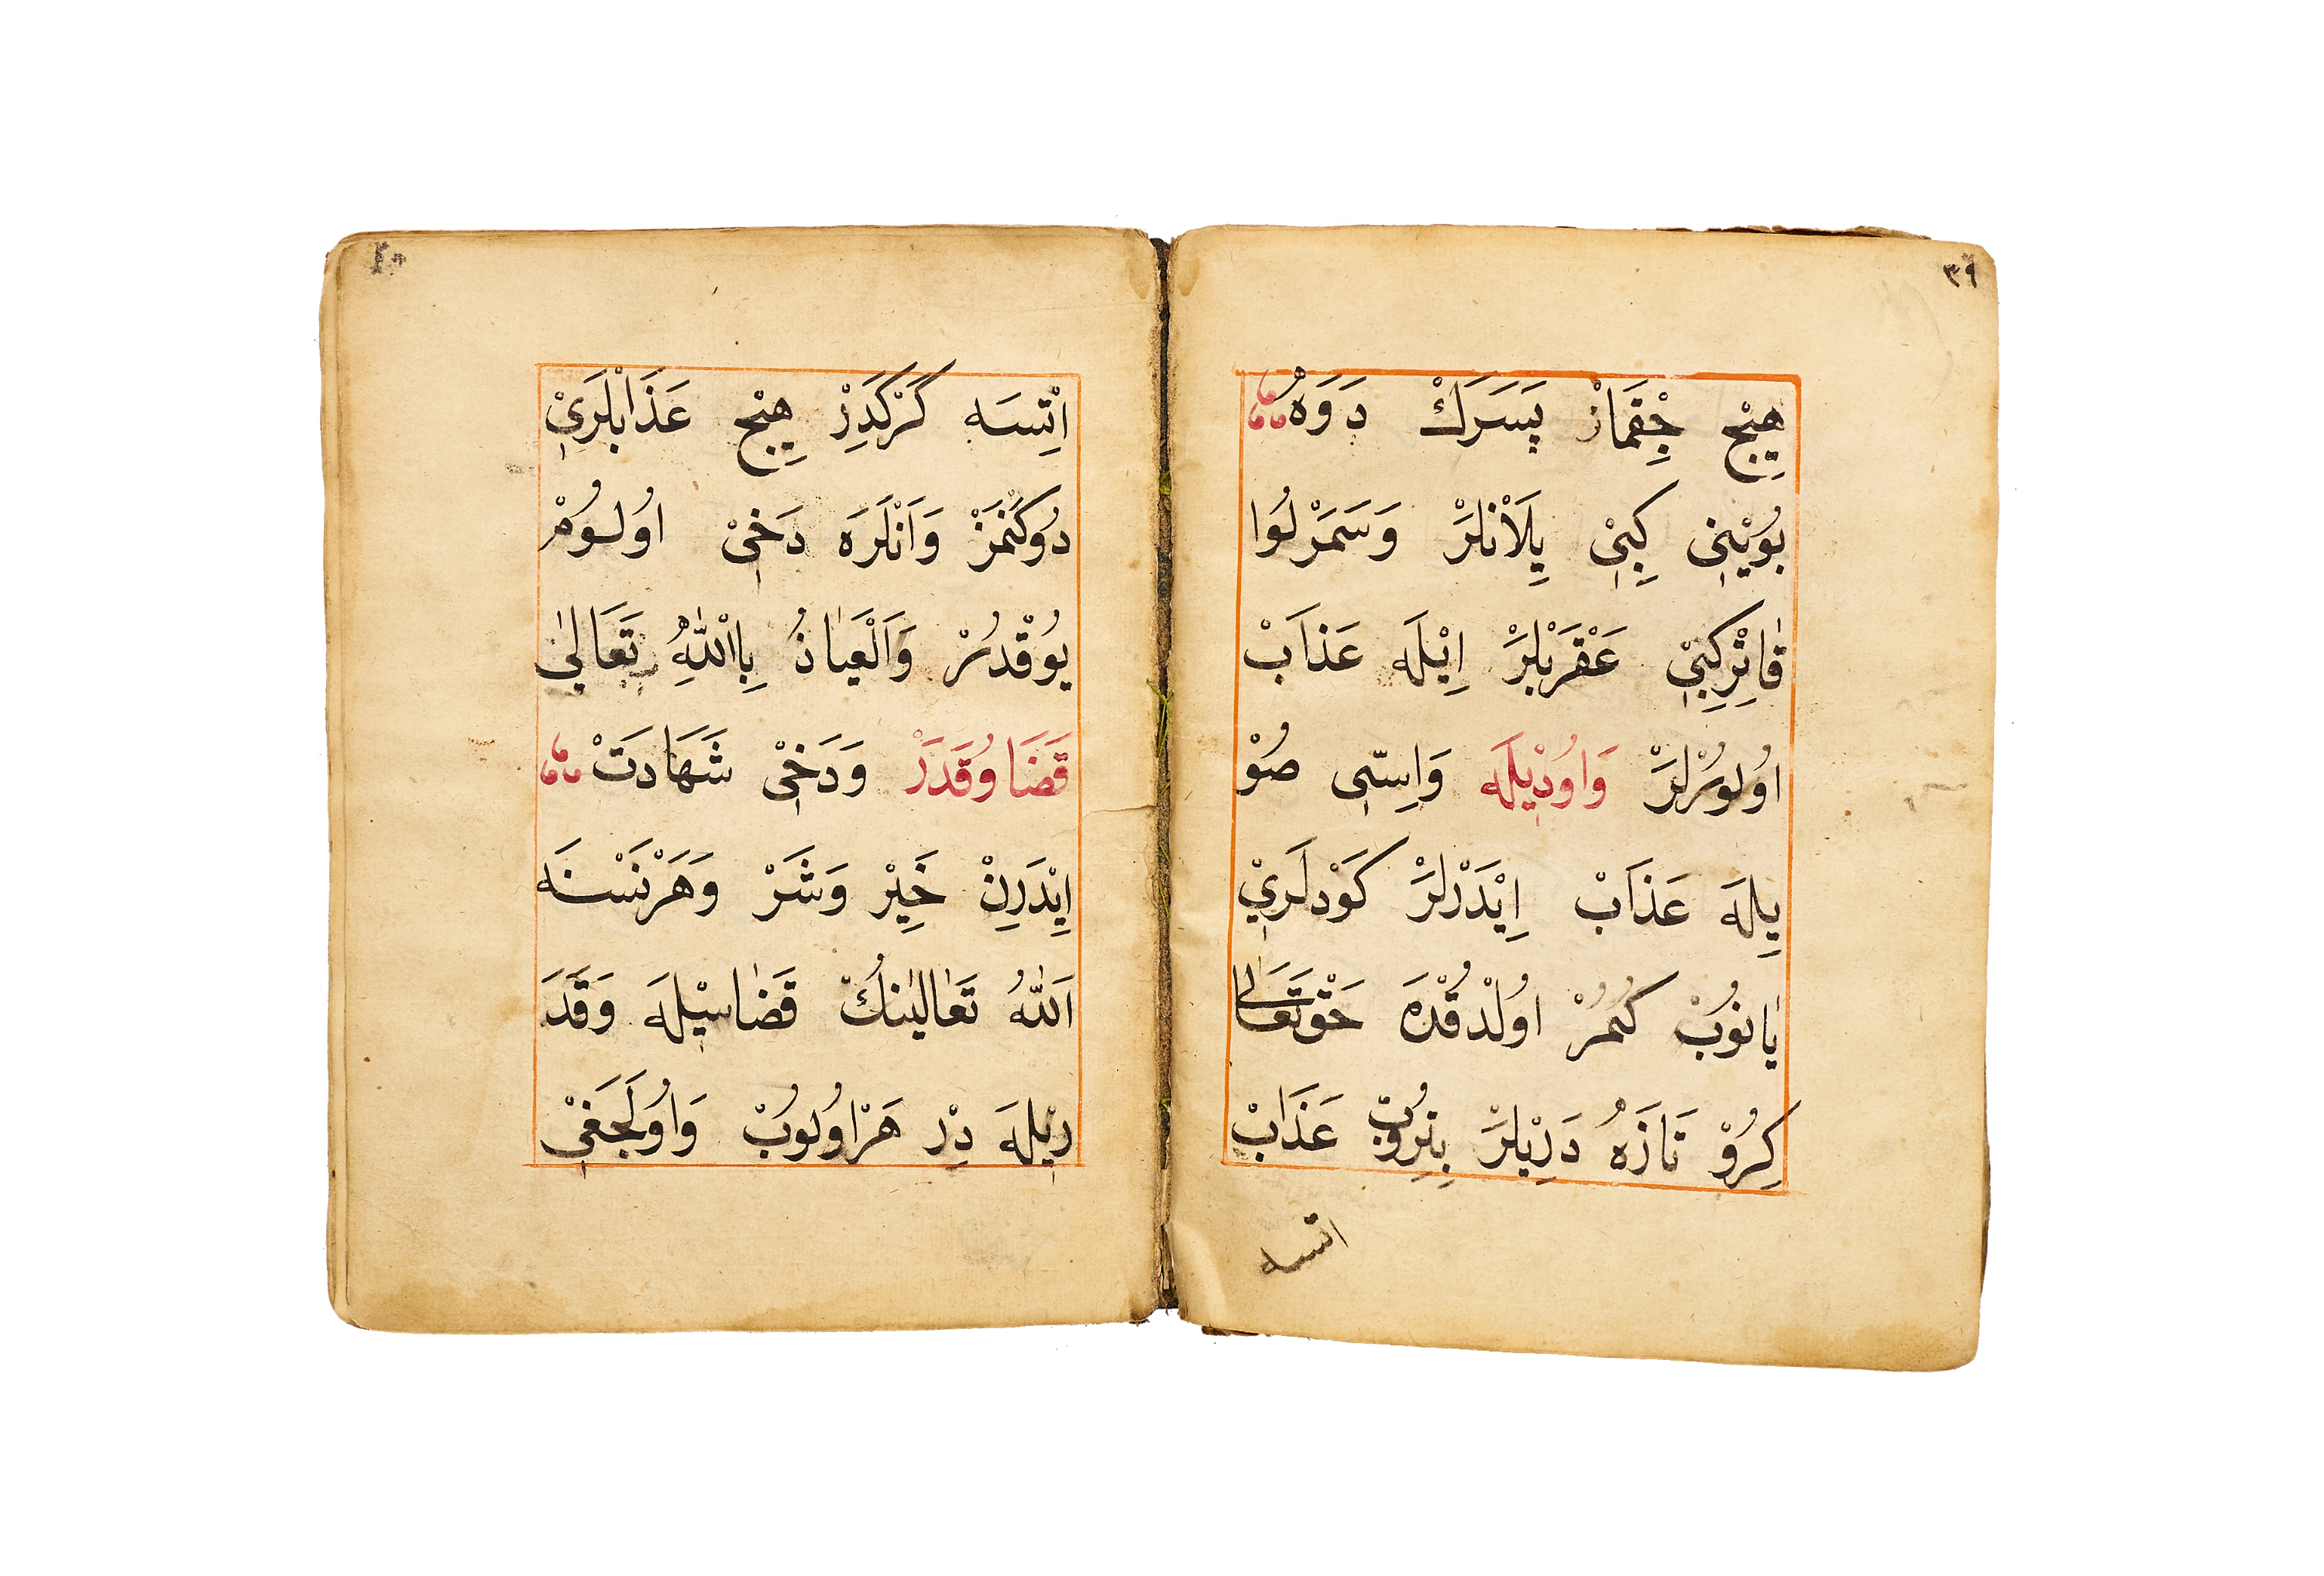 ٣٩
هِيْچ چِقْمَازْ پَسَرَكْ دَوَهُ
بُوْيْنِيْ كِبِيْ يِلَاْنْلَرْ وَسَمَرْلُوا
قَاتِرْكِبِيْ عَقْرَبْلَرْ اِيْلَه عَذَابْ
اوُلُوُرْلَرْ وَاوُدْيْلَه وَاِسّىِ صُوْ
يِلَه عَذَابْ اِيْدَرْلَرْ كَوْدَلَرِيْ
يَانُوُبْ كُمُرْ اوُلْدُقْدَه حَقْ تَعَالٰى
كِرُوْ تَازَهُ دَرِيْلَرْ بِتِرُوُبْ عَذَابْ
اتسه
٤٠
اِتْسَه كَرْكَدِرْ هِيْچ عَذَابْلَرِيْ
دُوكَنْمَزْ وَاَنْلَرَه دَخِيْ اوُلُوُمْ
يُوْقْدُرْ وَالْعَيَاذُ بِااللّٰهِ تَعَالٰى
قَضَا وُقَدَرْ وَدَخِيْ شَهَادَتْ
اِيْدَرِنْ خَيِرْ وَشَرْ وَهَرْنَسْنَه
اَللّٰهُ تَعَالٰينُكْ قَضَاسِيْلَه وَقَدَ
رِيْلَه دِرْ هَرْاوُلُوبْ وَاوُلَجَغِيْ